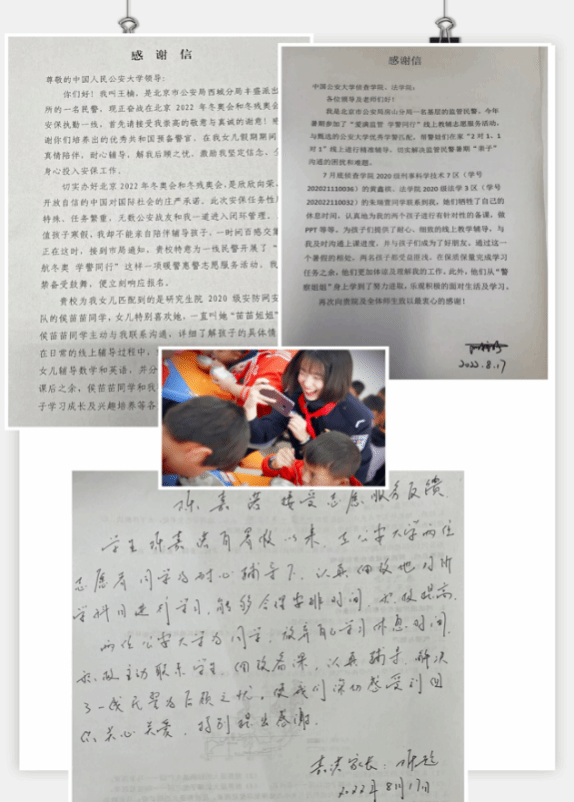 感谢信
尊敬的中国人民公安大学领导:
你们好!我叫王楠,是北京市公安局西城分局丰盛派出
所的一名民警,现正奋战在北京 2022 年冬奥会和冬残奥会
安保执勤一线,首先请接受我崇高的敬意与真诚的谢意!感
谢你们培养出的优秀共和国预备警官,在我女儿假期期间
真情陪伴、耐心辅导,解我后顾之忧,激励我坚定信念、全
身心投入安保工作。
切实办好北京 2022 年冬奥会和冬残奥会,是欣欣向荣、
开放自信的中国对国际社会的庄严承诺。此次安保任务性质
特殊、任务繁重,无数公安战友和我一道进入闭环管理。
值孩子寒假,我却不能亲自陪伴辅导孩子,一时间百感交集
正在这时,接到市局通知,贵校特意为一线民警开展了“
航冬奥 学警同行”这样一项暖警惠警志愿服务活动,我
禁备受鼓舞,便立刻响应报名。
贵校为我女儿匹配到的是研究生院 2020 级安防网安
队的侯苗苗同学,女儿特别喜欢她,一直叫她“苗苗姐姐”
侯苗苗同学主动与我联系沟通,详细了解孩子的具体情
在日常的线上辅导过程中,
女儿辅导数学和英语,并分
课后之余,侯苗苗同学和我
子学习成长及兴趣培养等各
感谢信
中国公安大学侦查学院、法学院:
各位领导及老师们好!
我是北京市公安局房山分局一名基层的监管民警,今年
暑期参加了“爱满监管 学警同行”线上教辅志愿服务活动,
与甄选的公安大学优秀学警匹配,帮警娃们在家“2 对 1、1
对 1”线上进行精准辅导,切实解决监管民警暑期“亲子”
沟通的困扰和难题。
7 月底侦查学院 2020 级刑事科学技术 7 区(学号
202021110036)的黄鑫槟、法学院 2020 级法学 3 区(学号
202022110032)的朱细雪同学联系到我,她们牺牲了自己的
休息时间,认真地为我的两个孩子进行有针对性的备课,做
PPT 等等,为孩子们提供了耐心、细致的线上教学辅导,与
我及时沟通上课进度,并与孩子们成为了好朋友。通过这一
个暑假的相处,两名孩子都受益匪浅,在保质保量完成学习
任务之余,他们更加体谅及理解我的工作。此外,他们从“警
察姐姐”身上学到了努力进取,乐观积极的面对生活及学习。
再次向贵院及全体师生致以最衷心的感谢!
2022.8.17
接受志愿服务反馈
学生陈嘉淇自暑假以来,在公安大学两位
志愿者同学的耐心辅导下,认真细致地对所
学科目进行学习,能够合理安排时间,水平提高。
两位公安大学的同学,放弃自己学习休息时间,
积极主动联系学生,细致备课,认真辅导,解决
了一线民警的后顾之忧,使我们深切感受到组
织关心关爱,特别提出感谢。
2022年8月17日